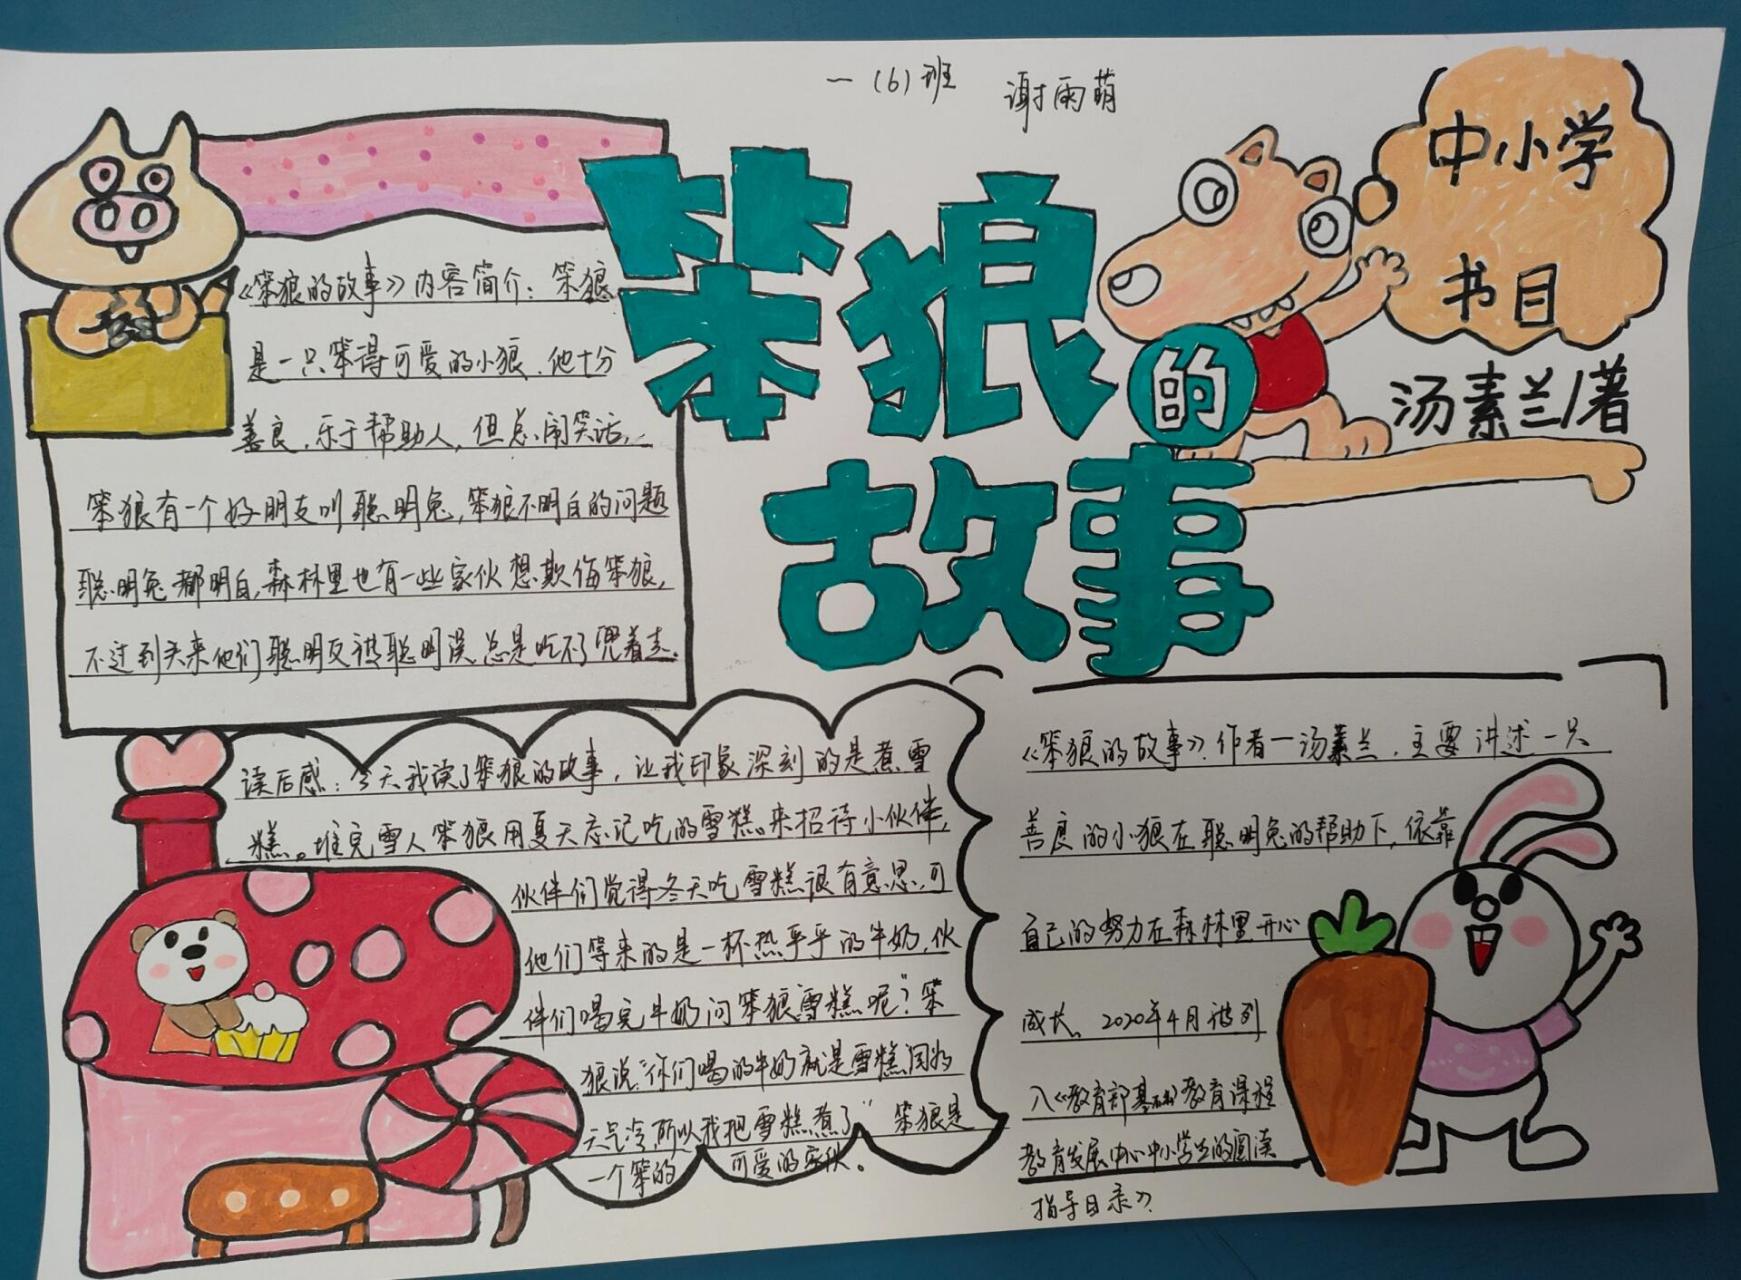 一(6)班 谢雨萌
笨狼
的
故事
中小学
书目
汤素兰/著
《笨狼的故事》内容简介：笨狼
是一只笨得可爱的小狼，他十分
善良，乐于帮助人，但总闹笑话，
笨狼有一个好朋友叫聪明兔，笨狼不明白的问题
聪明兔都明白，森林里也有一些家伙想欺侮笨狼，
不过到头来他们聪明反被聪明误，总是吃不了兜着走。
读后感：今天我读了笨狼的故事，让我印象深刻的是煮雪
糕。堆完雪人笨狼用夏天忘记吃的雪糕。来招待小伙伴，
伙伴们觉得冬天吃雪糕很有意思，可
他们等来的是一杯热乎乎的牛奶，伙
伴们喝完牛奶问笨狼"雪糕呢？"笨
狼说："你们喝的牛奶就是雪糕，因为
天气冷所以我把雪糕煮了"笨狼是
一个笨的 可爱的家伙。
《笨狼的故事》作者一汤素兰，主要讲述一只
善良的小狼在聪明兔的帮助下，依靠
自己的努力在森林里开心
成长。2020年4月被列
入《教育部基础教育课程
教育发展中心中小学生的阅读
指导目录》